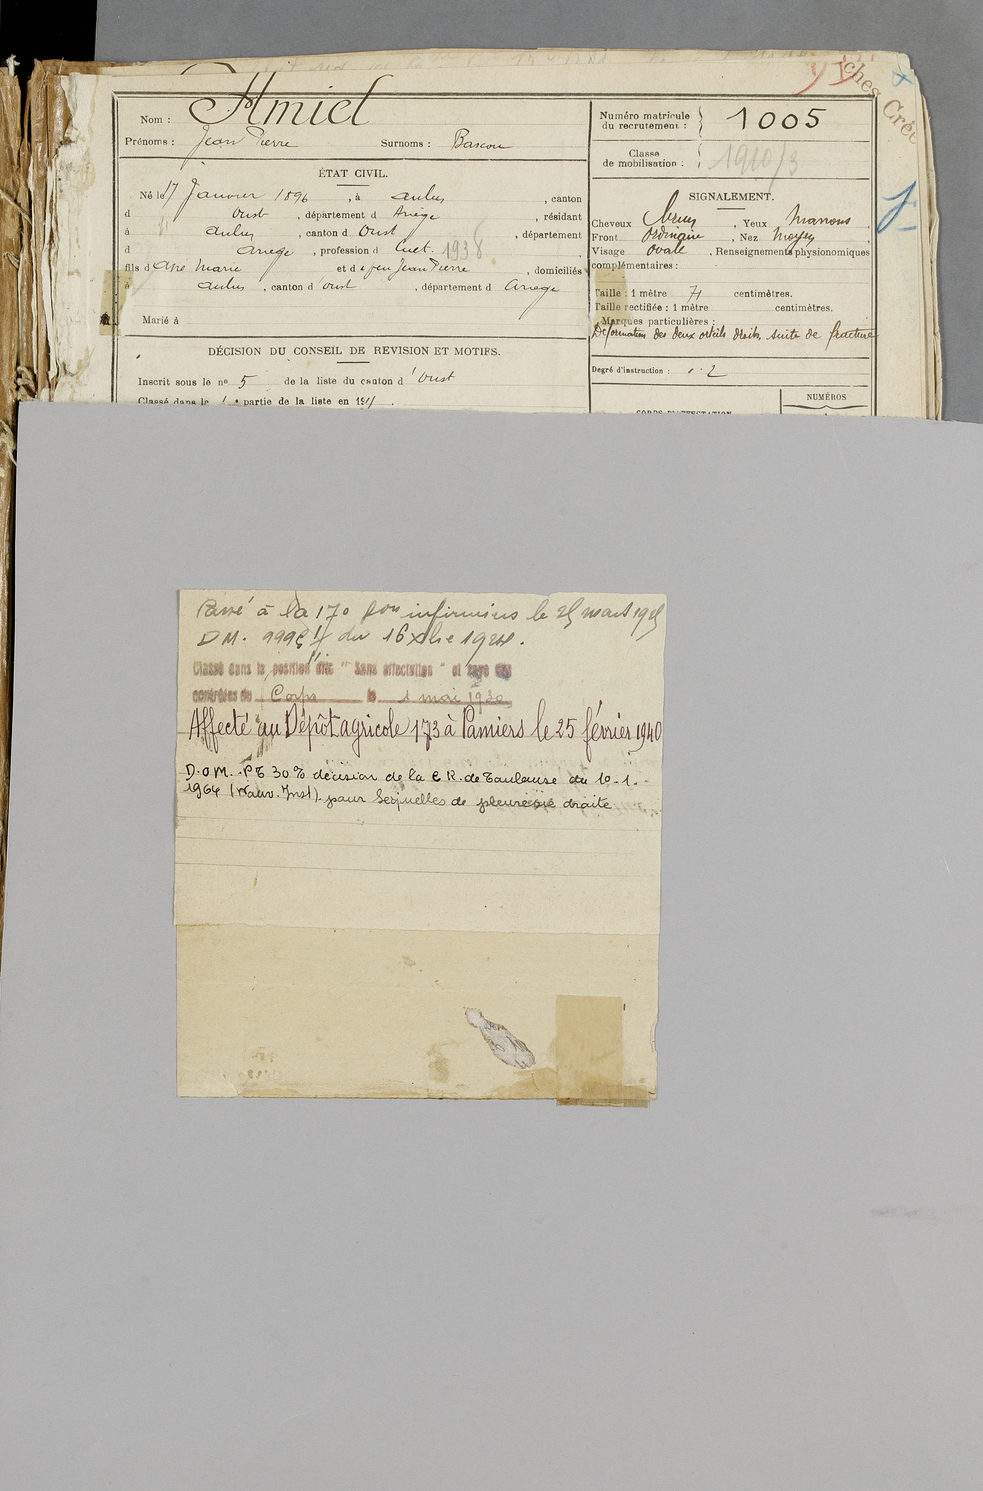 ches Créé
Nom : Amiel
Prénoms : Jean Pierre Surnoms : Bascou
Numéro matricule du recrutement : 1005
Classe de mobilisation : 1910/3
ÉTAT CIVIL.
Né le 17 Janvier 1896, à Aulus, canton
d Oust, département d Ariège, résidant
à Aulus, canton d Oust, département
d Ariege, profession d Cult. 1938
fils d Marie et d feu Jean Pierre, domiciliés
à Aulus, canton d Oust, département d Ariege
Marié à
SIGNALEMENT.
Cheveux brun, Yeux Marrons
Front Ordinaire, Nez Moyen
Visage Ovale, Renseignements physionomiques
complémentaires :
Taille : 1 mètre 71 centimètres.
Taille rectifiée : 1 mètre centimètres.
Marques particulières :
Déformation des deux orteils droits, suite de fracture
Degré d'instruction : 2
DÉCISION DU CONSEIL DE REVISION ET MOTIFS.
Inscrit sous le nº 5 de la liste du canton d'Oust
Classé dans la 1e partie de la liste en 191
NUMÉROS
CORPS D'AFFECTATION
Passé à la 17e Son infirmiers le 25 mars 1925
D.M. du 16 Xbre 1924.
Classé dans la position dite "Sans affectation" et rayé des
contrôles du Corps le 1 mai 1930
Affecté au Dépôt agricole 173 à Pamiers le 25 février 1940
D.O.M. PT 30% décision de la C R. de Toulouse du 10.1.
1964 (Nouv. Inst). pour Sequelles de pleurésie droite